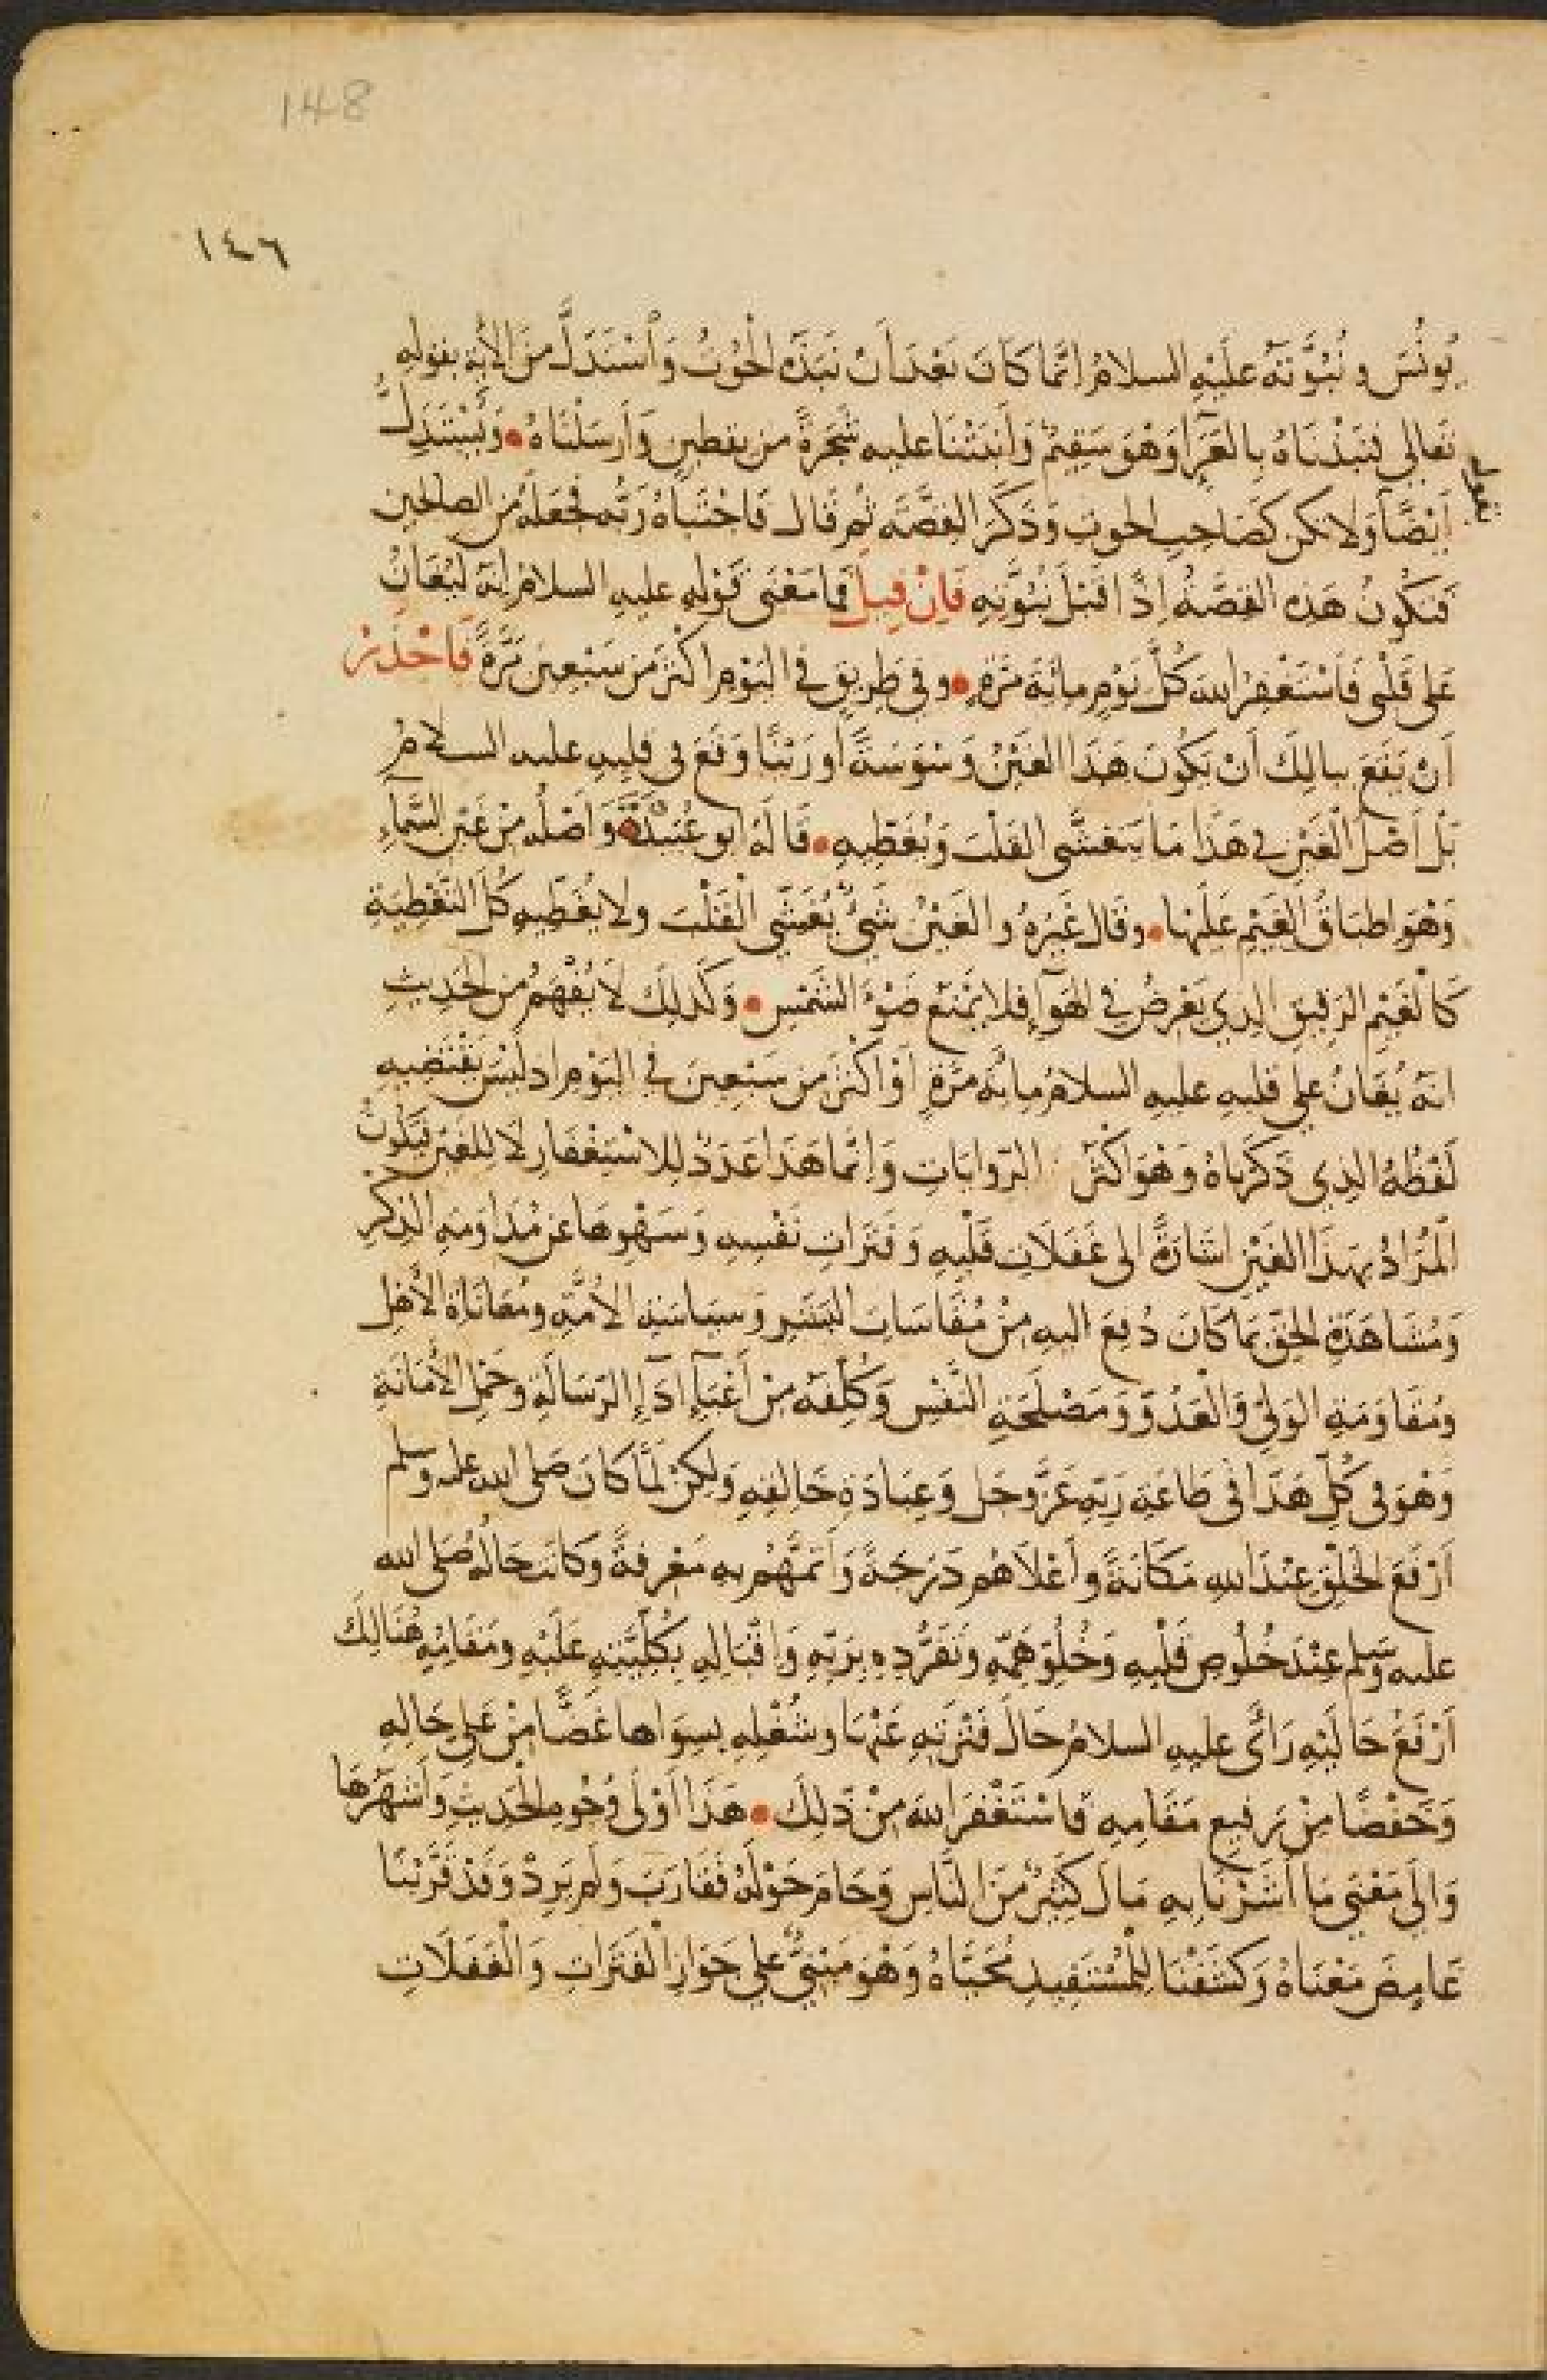 148
١٤٦
يُونُسَ ونُبُوَّتَهُ عَلَيْهِ السلامُ إنَّمَا كَانَ بَعْدَ أَنْ نَبَذَهُ الْحُوتُ وَاسْتَدَلَّ مِنَ الآيَةِ بقولِهِ
تَعالى فَنَبَذْنَاهُ بِالعَرَآءِ وَهْوَ سَقِيمٌ وَأَنْبَتْنَا عليه شَجَرَةً من يقطينٍ وَأَرسَلْنَاهُ • وَيُسْتَدَلُّ
بقوله
أَيْضًا وَلا تكن كَصَاحِبِ الحوتِ وَذَكَرَ القِصَّة ثُم قَال فَاجْتَبَاهُ رَبُّه فجَعَلهُ مِن الصالحين
فَتكُونُ هَذِه القِصَّةُ إِذًا قَبْلَ نُبُوَّتِهِ فَإِنْ قِيلَ فما مَعْنَى قَوْلِهِ عليهِ السلامُ إنَّهُ لَيُغَانُ
عَلى قَلْبِي فَأَسْتَغْفِرُ الله كُلَّ يَوْمٍ مِائَةَ مَرَّةٍ • وفي طَرِيقٍ في اليَوْمِ أكْثَرَ مِن سَبْعِينَ مَرَّةً فَاحْذَرْ
أَنْ يَقَعَ ببالِكَ أَنْ يَكُونَ هَذَا الغَيْنُ وَسْوَسَةً أو رَيْنًا وَقَعَ في قلبِهِ عليه السلامُ
بَلْ أَصْلُ الْغَيْنِ في هَذَا مَا يَتَغَشَّى القَلْبَ وَيُغَطِّيهِ • قَالَهُ أبو عُبَيْدٍ • وَأَصْلُه مِنْ غَيْنِ السَّمآءِ
وَهْوَ إطبَاقُ الغَيْمِ عَلَيْهَا • وقَالَ غَيْرُهُ والغَيْنُ شَيْءٌ يُغَشِّي الْقَلْبَ ولا يُغَطِّيهِ كُلَّ التَّغْطِيَةِ
كَالْغَيْمِ الرَقِيقِ الذي يَعْرِضُ في الهَوآءِ فلا يَمْنَعُ ضَوْءَ الشَّمْسِ • وَكَذلِكَ لا يُفْهَمُ مِنَ الحَدِيثِ
انهُ يُغَانُ على قلبهِ عليهِ السلامُ مِائَةَ مَرَّةٍ أَوْ أَكْثَرَ مِن سَبْعِينَ في اليَوْمِ إذ لَيْسَ يَقْتَضِيهِ
لَفْظُهُ الذي ذَكَرْنَاهُ وَهْوَ أكْثَرُ الرِّوَايَاتِ وَإِنَّمَا هَذَا عَدَدٌ لِلاسْتِغْفَارِ لا لِلْغَيْنِ فيَكُونُ
الْمُرَادُ بِهَذَا الغَيْنِ إشَارَةً إلى غَفَلَاتِ قَلْبِهِ وَفَتَرَاتِ نَفْسِهِ وَسَهْوِهَا عن مُدَاوَمَةِ الذِّكْرِ
وَمُشَاهَدَةِ الحَقِّ بمَا كَانَ دُفِعَ اليهِ مِنْ مُقَاسَاةِ البَشَرِ وَسِيَاسَةِ الأُمَّةِ ومُعَانَاةِ الأَهْلِ
ومُقَاوَمَةِ الوَلِيِّ وَالْعَدُوِّ وَمَصْلَحَةِ النَّفْسِ وَكُلِّفَهُ مِنْ أَعْبَآءِ أَدَآءِ الرّسَالَةِ وحَمْلِ الأَمَانَةِ
وَهْوَ في كُلِّ هَذَا في طَاعَةِ رَبِّهِ عَزَّ وجَل وَعِبَادَةِ خَالِقِهِ وَلكِنْ لَمَّا كانَ صَلى الله عليه وسلم
أَرْفَعَ الخَلْقِ عِنْدَ اللهِ مَكَانَةً وأَعْلَاهُم دَرَجَةً وَأَتَمَّهُمْ بهِ مَعْرِفَةً وكانت حَالُهُ صَلى الله
عليه وسلم عِنْدَ خُلُوصِ قَلْبِهِ وَخُلُوِّ هَمِّهِ وَتَفَرُّدِهِ بِرَبِّهِ وَإِقْبَالِهِ بِكُلِّيَّتِهِ عَلَيْهِ ومَقَامِهِ هُنَالِكَ
أَرْفَعَ حَالَيْهِ رَأَى عليهِ السلامُ حَالَ فَتْرَتِهِ عَنْهَا وشُغْلِهِ بسِوَاها غَضًّا مِنْ عَلِيِّ حَالِهِ
وَخَفْضًا مِنْ رَفِيعِ مَقَامِهِ فاسْتَغْفَرَ الله مِنْ ذَلِكَ • هَذَا أَوْلَى وُجُوهِ الْحَدِيثِ وَأَشْهَرُهَا
وَإلَى مَعْنَى مَا أَشَرْنَا بِهِ مَالَ كَثِيرٌ مِنَ النَّاسِ وَحَامَ حَوْلَهُ فَقَارَبَ وَلَمْ يَرِدْ وَقَدْ قَرَّبْنَا
غَامِضَ مَعْنَاهُ وَكَشَفْنَا لِلْمُسْتَفِيدِ مُحَيَّاهُ وَهْوَ مَبْنِيٌّ على جَوَازِ الْفَتَرَاتِ وَالْغَفَلَاتِ